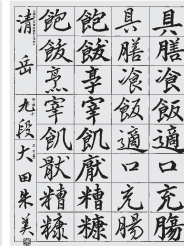 具膳飡飯適口充膓
具膳飡飯適口充腸
飽飫亨宰飢厭糟糠
飽飫烹宰飢猒糟糠
清岳 九段 大田朱美